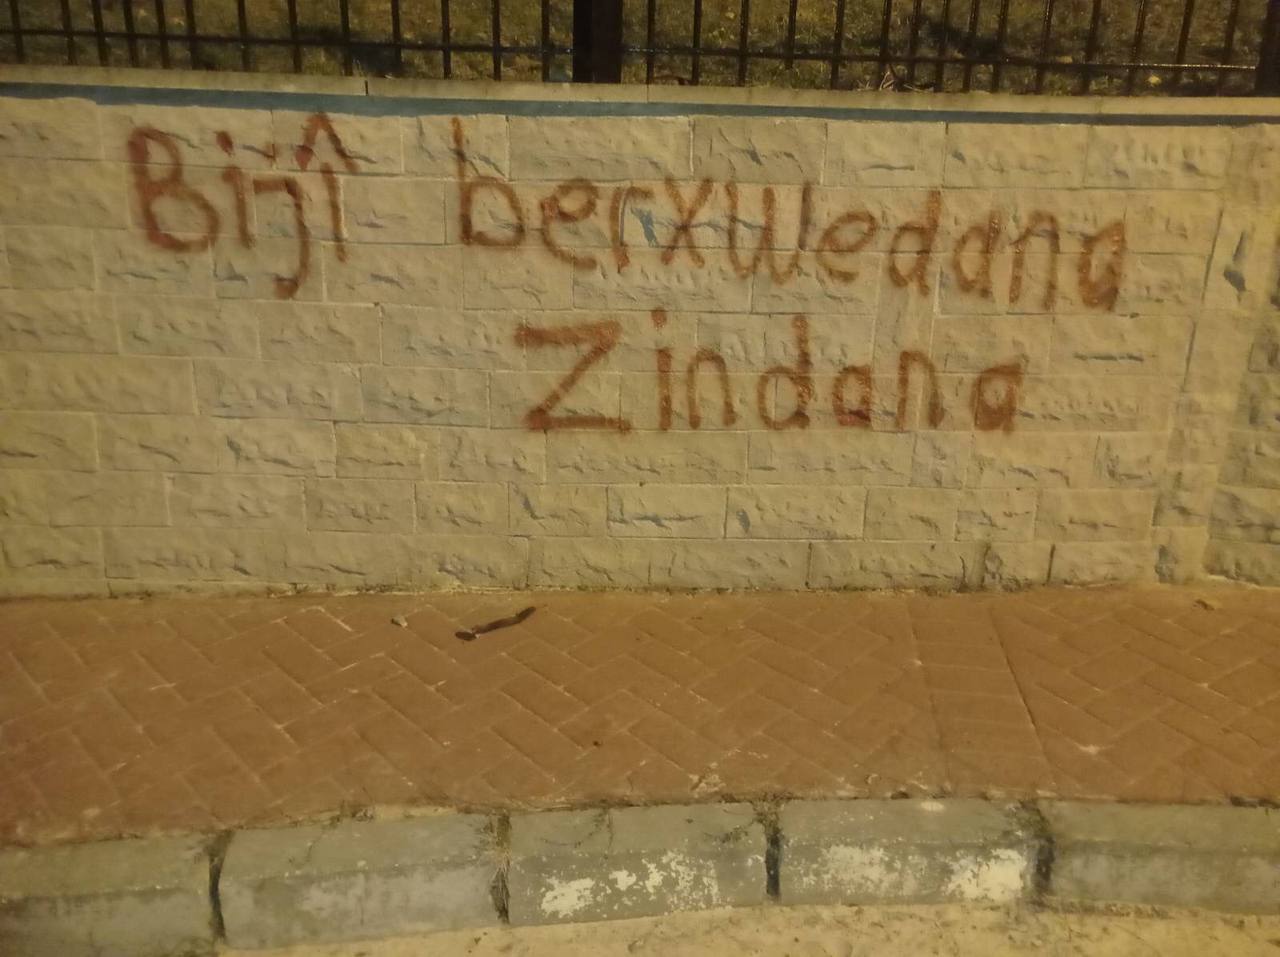 Bijî berxwedana
Zindana